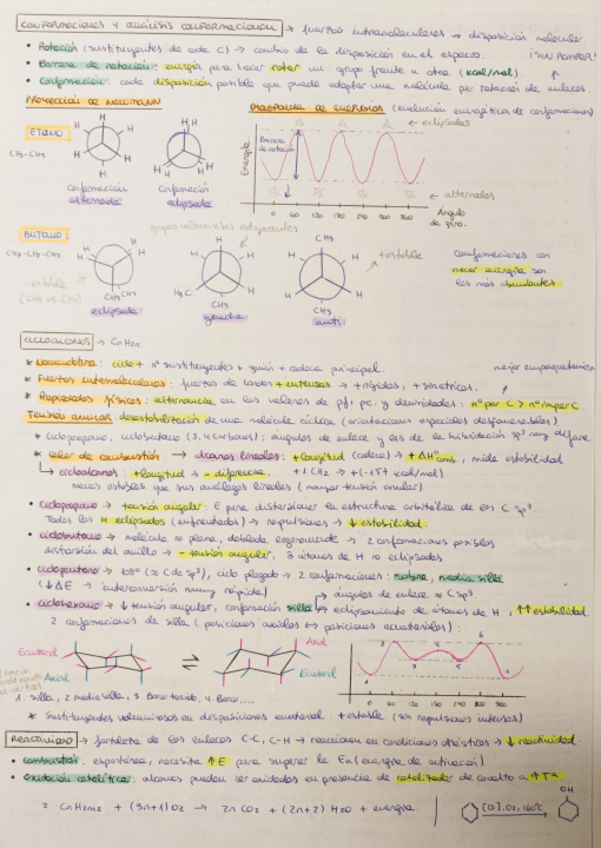 CONFORMACIONES Y ANÁLISIS CONFORMACIONAL → fuerzas intramoleculares → disposición molecular.
• Rotación (sustituyentes de cada C) → cambio de la disposición en el espacio. ¡SIN ROMPER!
• Barrera de rotación: energía para hacer rotar un grupo frente a otro (kcal/mol).
• Conformación: cada disposición posible que puede adoptar una molécula por rotación de enlaces.
PROYECCIÓN DE NEWMANN
DIAGRAMA DE ENERGÍAS (evolución energética de conformaciones)
ETANO
CH3-CH3
H H H H H H
H H H H H H
conformación alternada
conformación eclipsada
Energía
Barrera de rotación
→ eclipsadas
→ alternadas
0 60 120 180 240 300 360
Ángulo de giro.
BUTANO:
grupos voluminosos adyacentes
- estable
(CH3 vs. CH3)
CH3 CH3
eclipsada
H3C
CH3
gauche
CH3
CH3
anti
+ estable
conformaciones con menor energía son las más abundantes.
CICLOALCANOS → CnH2n.
* Nomenclatura: ciclo + nº sustituyentes + guión + cadena principal.
mejor empaquetamien
* Fuerzas intermoleculares: fuerzas de London + intensas → + rígidos, + simétricos.
* Propiedades físicas: alternancia en los valores de pf, pe. y densidades: nº par C > nº impar C.
TENSIÓN ANULAR: desestabilización de una molécula cíclica (orientaciones espaciales desfavorables).
* Ciclopropano, ciclobutano (3, 4 carbonos): ángulos de enlace y los de la hibridación sp³ muy difere
* Calor de combustión → alcanos lineales: + longitud (cadena) → + ΔH°comb, mide estabilidad
↳ cicloalcanos: + longitud → - diferencia. + 1 CH2 → + (-157 kcal/mol)
menos estables que sus análogos lineales (mayor tensión anular)
• Ciclopropano → tensión angular: E para distorsionar la estructura orbitálica de los C sp³.
Todos los H eclipsados (enfrentados) → repulsiones → ↓ estabilidad.
• Ciclobutano → molécula no plana, doblada ligeramente → 2 conformaciones posibles
distorsión del anillo → - tensión angular, átomos de H no eclipsados
• Ciclopentano → 108° (≈ C de sp³), ciclo plegado → 2 conformaciones: sobre, media silla
(↓ΔE → interconversión muy rápida)
ángulos de enlace ≈ C sp³.
• Ciclohexano → ↓ tensión angular, conformación silla → eclipsamiento de átomos de H, ↑↑ estabilidad.
2 conformaciones de silla (posiciones axiales ↔ posiciones ecuatoriales):
Ecuatorial
Axial
⇌
Axial
Ecuatorial
0 60 120 180 240 300 360
1. silla, 2 media silla, 3. Barco torcido, 4. Barco, ...
* Sustituyentes voluminosos en disposiciones ecuatorial: + estable (sin repulsiones intensas)
REACTIVIDAD → fortaleza de los enlaces C-C, C-H → reaccionan en condiciones drásticas → ↓ reactividad.
• Combustión: espontánea, necesita ↑E para superar la Ea (energía de activación)
• Oxidación catalítica: alcanos pueden ser oxidados en presencia de catalizador de cobalto a ↑Tª.
2 CnH2n+2 + (3n+1) O2 → 2n CO2 + (2n+2) H2O + energía
[O], O2, 160°C
OH